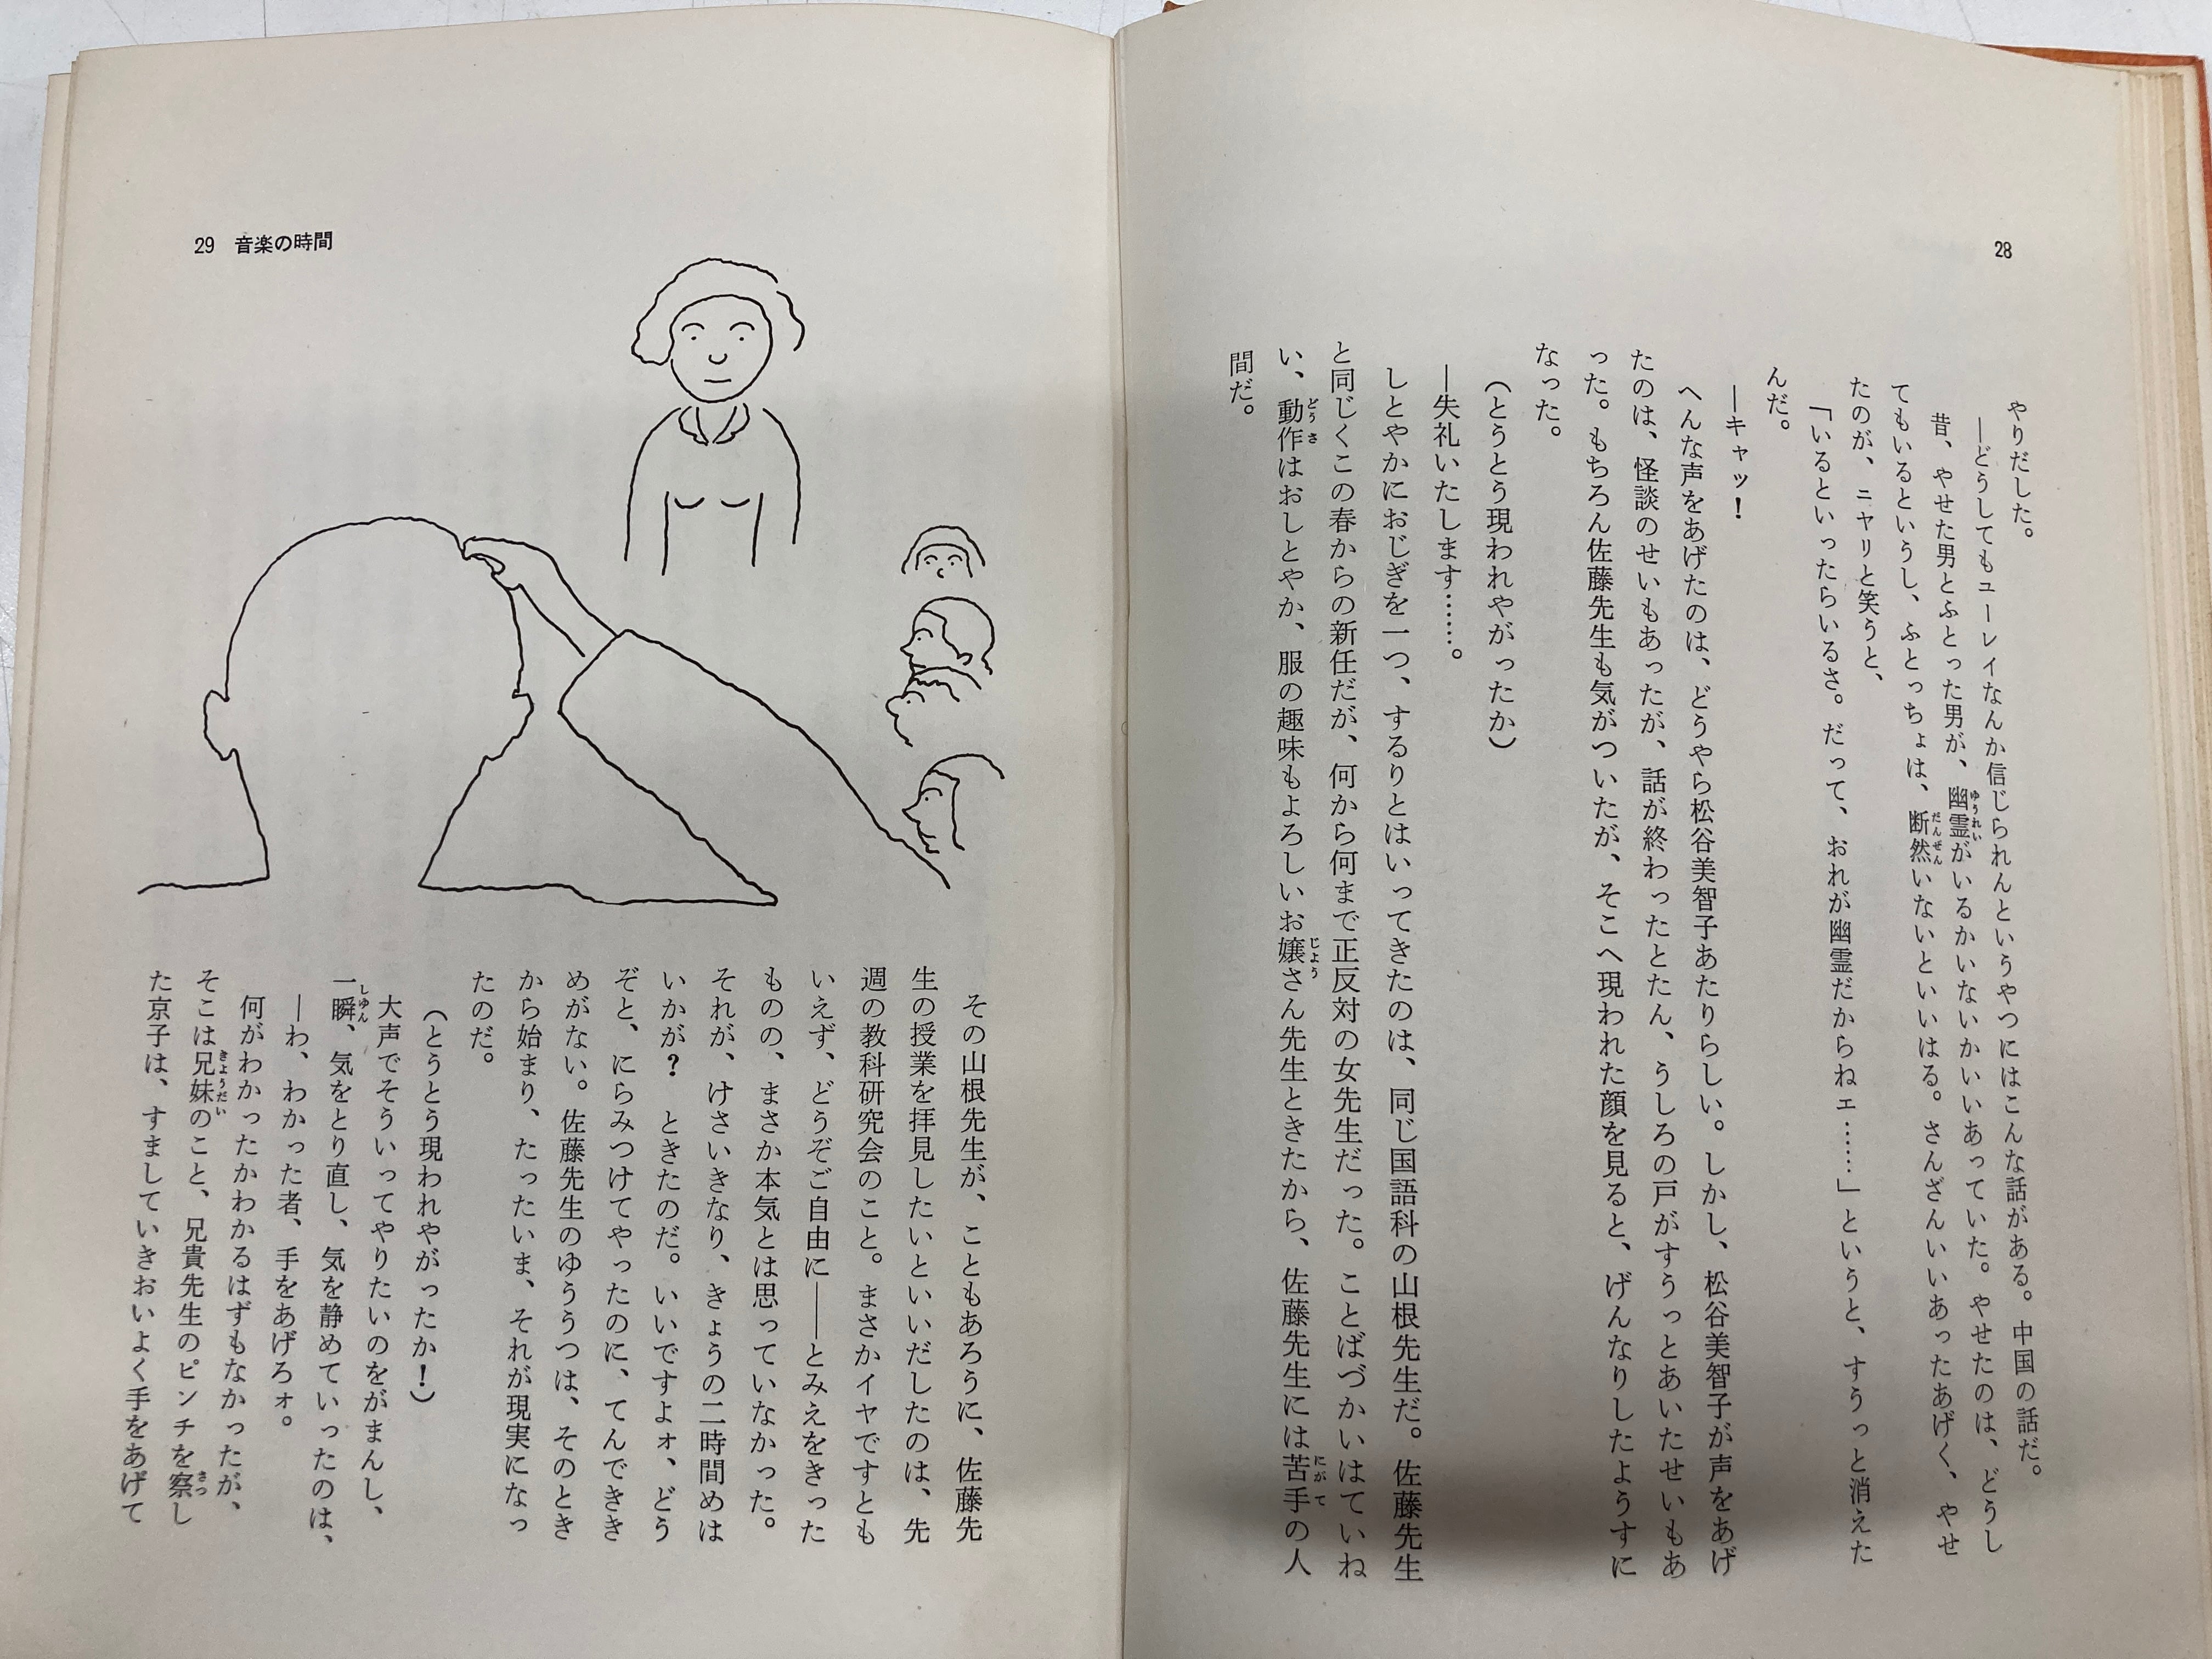 28
やりだした。
―どうしてもユーレイなんか信じられんというやつにはこんな話がある。中国の話だ。
昔、やせた男とふとった男が、幽霊がいるかいないかいいあっていた。やせたのは、どうし
てもいるというし、ふとっちょは、断然いないといいはる。さんざんいいあったあげく、やせ
たのが、ニヤリと笑うと、
「いるといったらいるさ。だって、おれが幽霊だからねェ……」というと、すうっと消えた
んだ。
―キャッ！
へんな声をあげたのは、どうやら松谷美智子あたりらしい。しかし、松谷美智子が声をあげ
たのは、怪談のせいもあったが、話が終わったとたん、うしろの戸がすうっとあいたせいもあ
った。もちろん佐藤先生も気がついたが、そこへ現われた顔を見ると、げんなりしたようすに
なった。
（とうとう現われやがったか）
―失礼いたします……。
しとやかにおじぎを一つ、するりとはいってきたのは、同じ国語科の山根先生だ。佐藤先生
と同じくこの春からの新任だが、何から何まで正反対の女先生だった。ことばづかいはていね
い、動作はおしとやか、服の趣味もよろしいお嬢さん先生ときたから、佐藤先生には苦手の人
間だ。
29 音楽の時間
その山根先生が、こともあろうに、佐藤先
生の授業を拝見したいといいだしたのは、先
週の教科研究会のこと。まさかイヤですとも
いえず、どうぞご自由に――とみえをきった
ものの、まさか本気とは思っていなかった。
それが、けさいきなり、きょうの二時間めは
いかが？　ときたのだ。いいですよォ、どう
ぞと、にらみつけてやったのに、てんでききめ
めがない。佐藤先生のゆううつは、そのとき
から始まり、たったいま、それが現実になっ
たのだ。
（とうとう現われやがったか！）
大声でそういってやりたいのをがまんし、
一瞬、気をとり直し、気を静めていったのは、
―わ、わかった者、手をあげろォ。
何がわかったかわかるはずもなかったが、
そこは兄妹のこと、兄貴先生のピンチを察し
た京子は、すましていきおいよく手をあげて